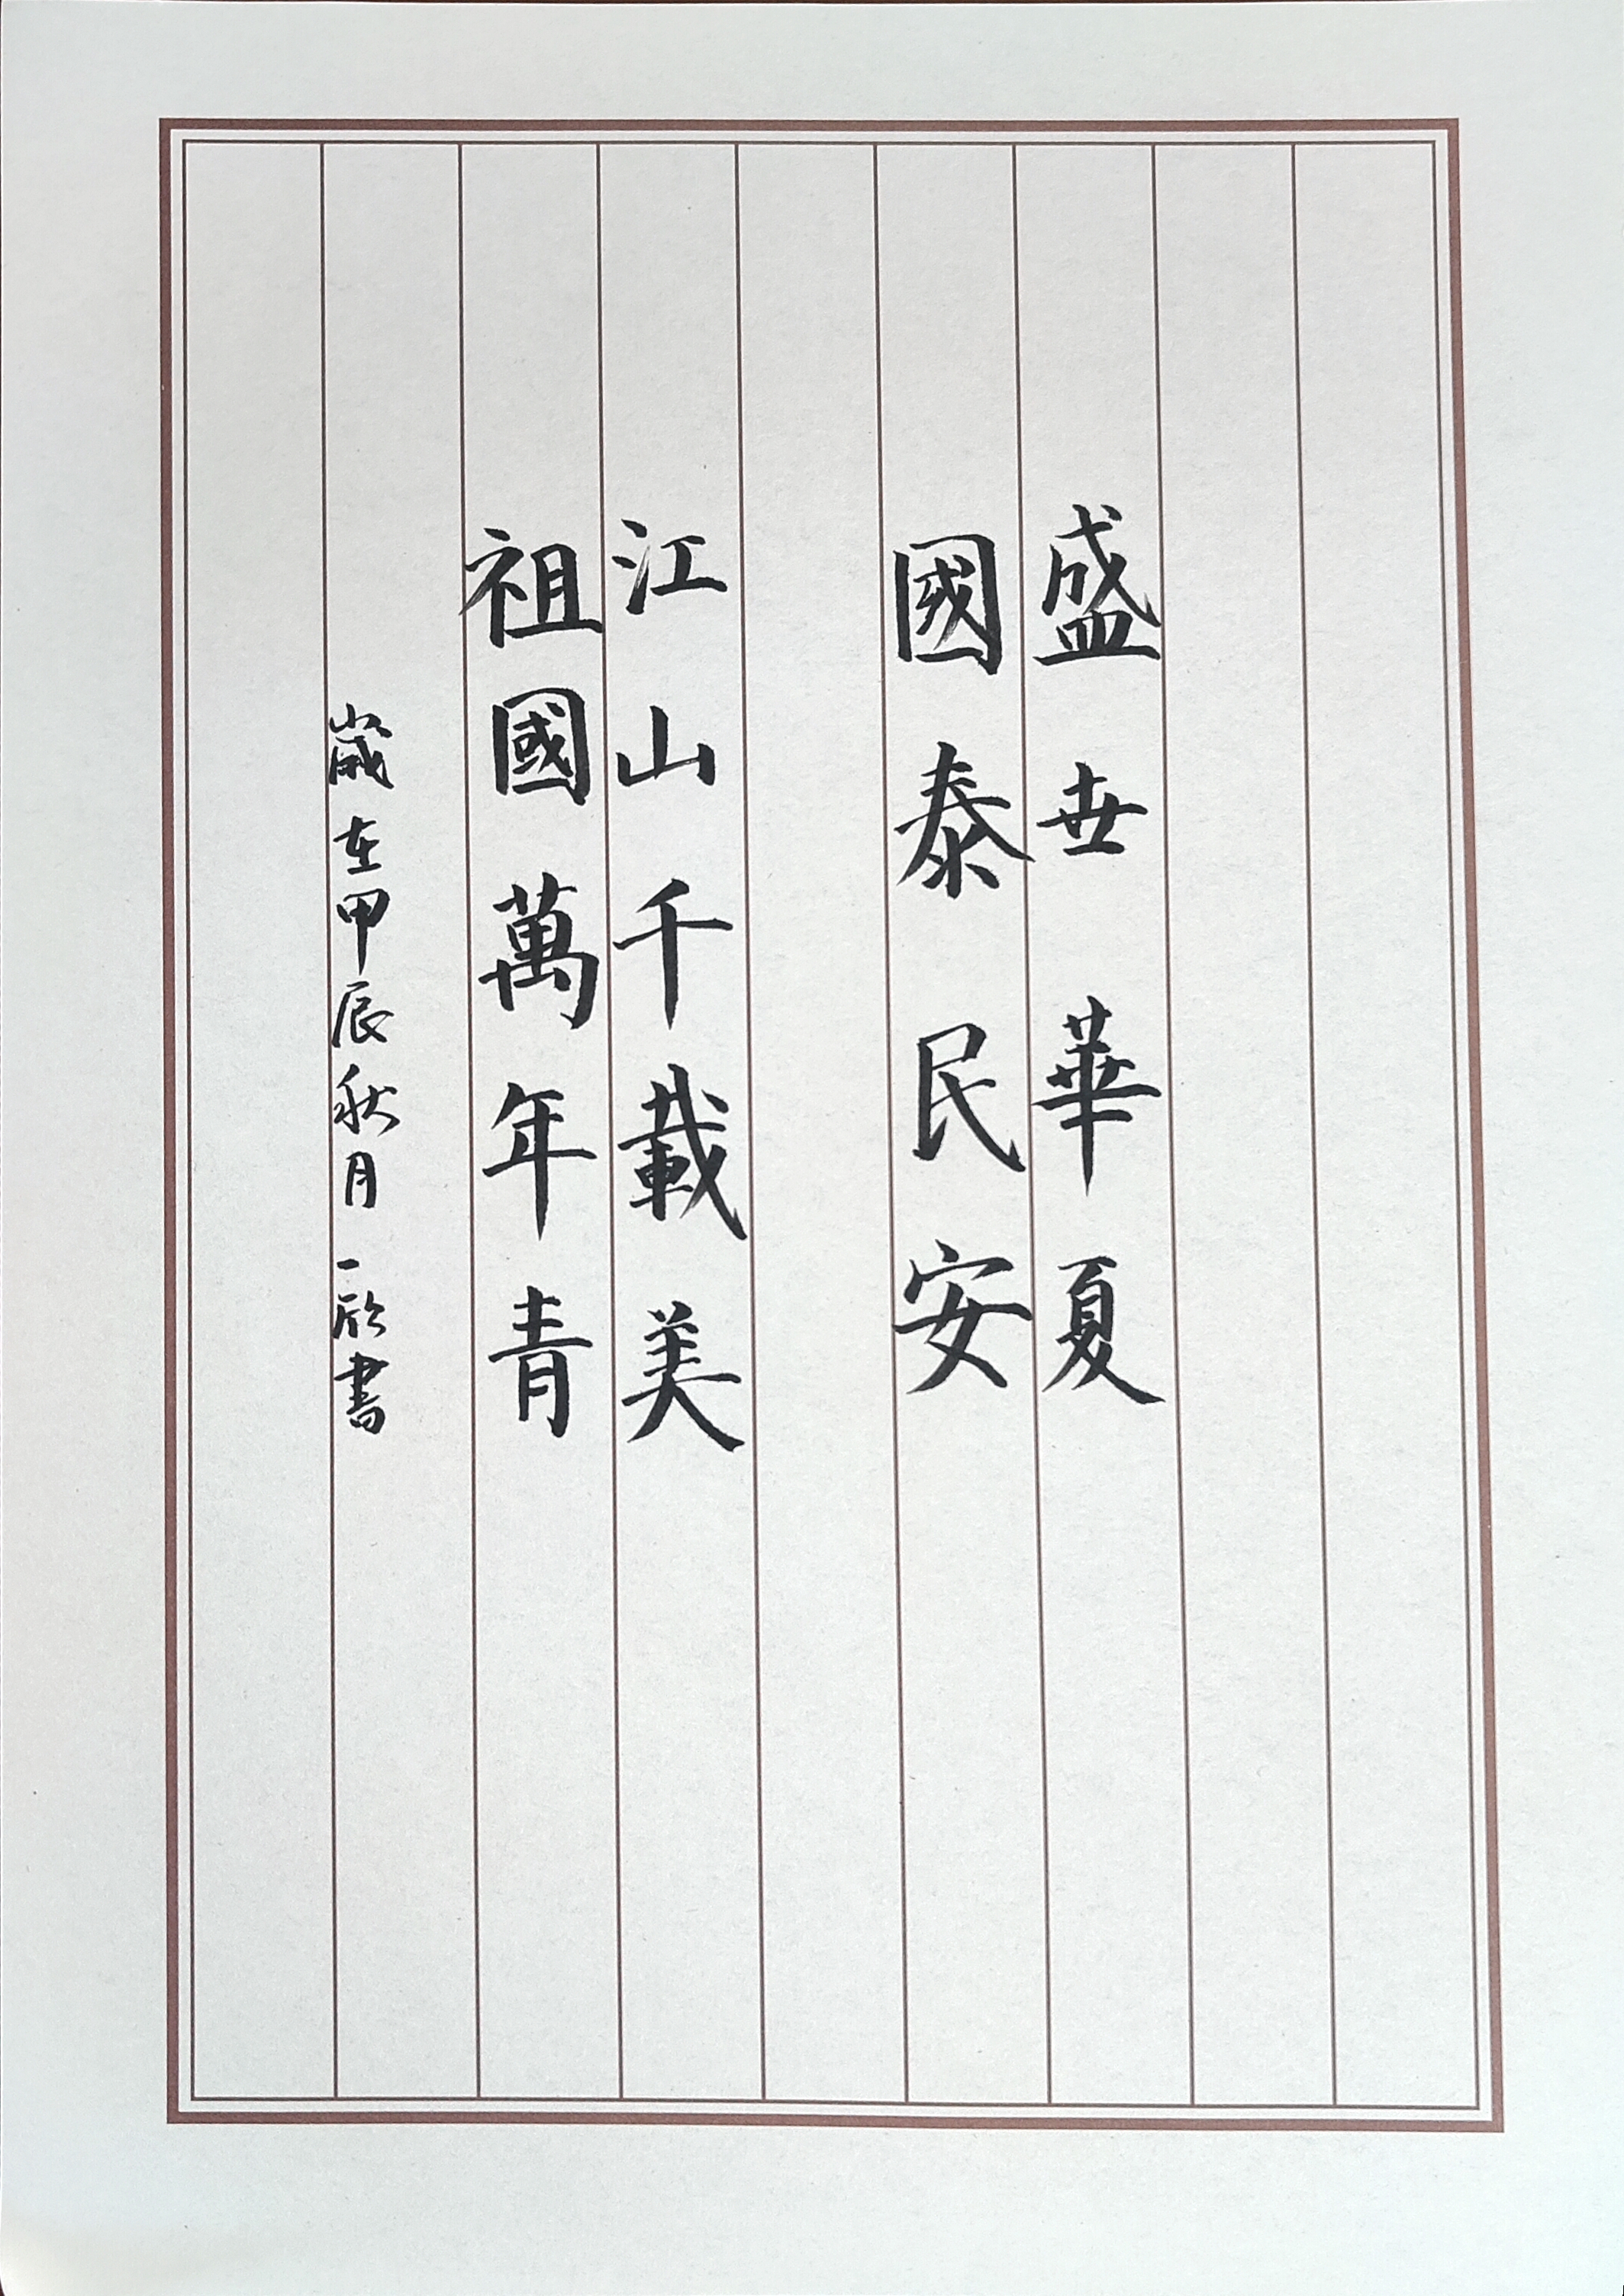 盛世華夏
國泰民安
江山千載美
祖國萬年青
歲在甲辰秋月一欣書